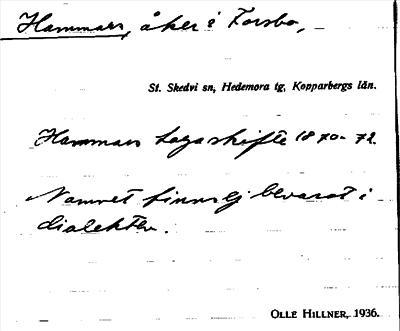 Hammars, åker i Forsbo,
St. Skedvi sn, Hedemora tg, Kopparbergs län.
Hammars lagaskifte 1870-72.
Namnet finns ej bevarat i
dialekten.
OLLE HILLNER, 1936.